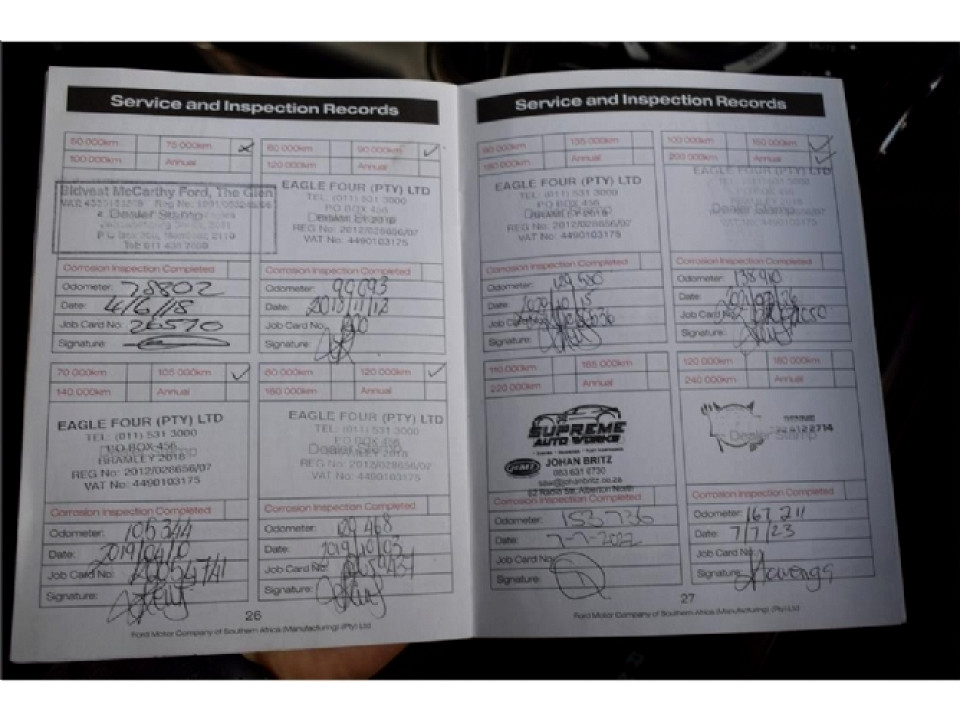 Service and Inspection Records
75 000km
100 000km
Annual
Bidvest McCarthy Ford, The Glen
Dealer Stamp
Corrosion Inspection Completed
Odometer: 78802
Date: 4/6/18
Job Card No: 26570
Signature:
90 000km
120 000km
Annual
EAGLE FOUR (PTY) LTD
TEL: (011) 531 3000
P.O BOX 456
BRAMLEY 2018
REG No: 2012/028656/07
VAT No: 4490103175
Corrosion Inspection Completed
Odometer: 99093
Date:
Job Card No:
Signature:
70 000km
105 000km
140 000km
Annual
EAGLE FOUR (PTY) LTD
TEL: (011) 531 3000
P.O BOX 456
BRAMLEY 2018
REG No: 2012/028656/07
VAT No: 4490103175
Corrosion Inspection Completed
Odometer: 105344
Date:
Job Card No:
Signature:
120 000km
160 000km
Annual
EAGLE FOUR (PTY) LTD
TEL: (011) 531 3000
P.O BOX 456
REG No: 2012/028656/07
VAT No: 4490103175
Corrosion Inspection Completed
Odometer:
Date: 2019/10/03
Job Card No:
Signature:
26
Ford Motor Company of Southern Africa (Manufacturing) (Pty) Ltd
Service and Inspection Records
135 000km
Annual
EAGLE FOUR (PTY) LTD
TEL: (011) 531 3000
P.O BOX 456
BRAMLEY 2018
REG No: 2012/028656/07
VAT No: 4490103175
Corrosion Inspection Completed
Odometer:
Date: 2020/10/15
Job Card No:
Signature:
100 000km
150 000km
200 000km
Annual
EAGLE FOUR (PTY) LTD
Dealer Stamp
Corrosion Inspection Completed
Odometer: 138910
Date:
Job Card No:
Signature:
110 000km
165 000km
220 000km
Annual
SUPREME
AUTO WORKS
RMI
JOHAN BRITZ
083 631 0730
62 Radio Str, Alberton North
Corrosion Inspection Completed
Odometer: 153736
Date: 7-7-2022
Job Card No:
Signature:
120 000km
180 000km
240 000km
Annual
Dealer Stamp
Corrosion Inspection Completed
Odometer: 167 211
Date: 7/7/23
Job Card No:
Signature:
27
Ford Motor Company of Southern Africa (Manufacturing) (Pty) Ltd